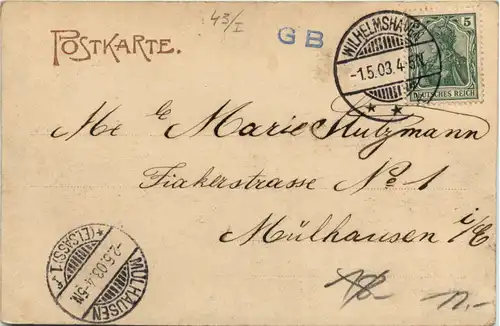 43/I
POSTKARTE.
GB
WILHELMSHAVEN
-1.5.03.4-5N.
5
DEUTSCHES REICH
Mlle Marie Stutzmann
Fiakerstrasse No 1
Mülhausen i/E
MÜLHAUSEN
-2.5.03.4-5N.
*(ELSASS)1 f
12.-